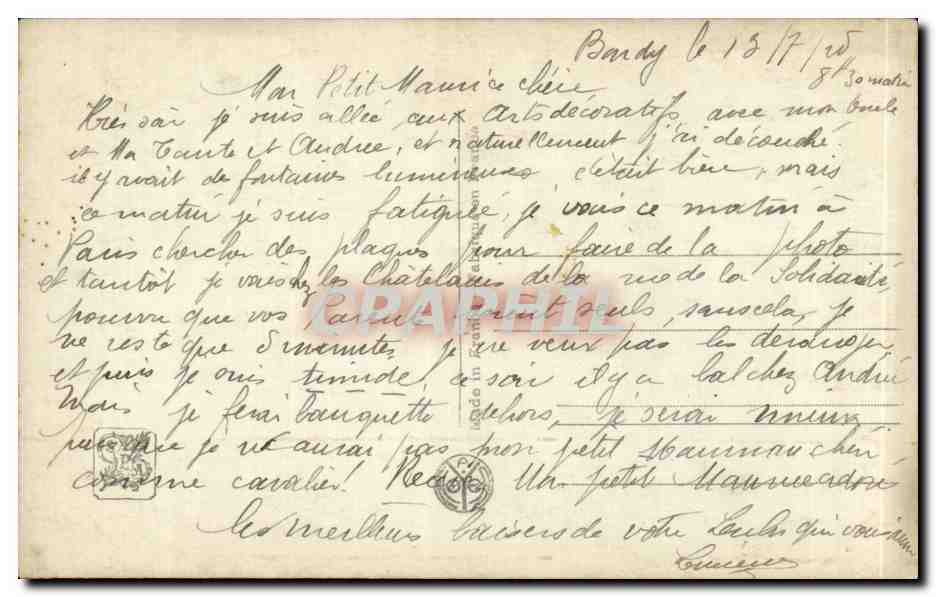 Bondy le 13/7/25
8h30 matin
Mon Petit Maurice chéri
Hier soir je suis allée aux Arts décoratifs avec mon Oncle
et Ma Tante et Andrée, et naturellement j'ai découché.
il y avait de fontaines lumineuses c'était bien, mais
ce matin je suis fatiguée, je vais ce matin à
Paris chercher des plaques pour faire de la photo
et tantôt je vais chez les Châtelains de la rue de la Solidarité,
pourvu que vos Parents soient seuls, sans cela, je
ne reste que 5 minutes je ne veux pas les déranger
et puis je suis timide, ce soir il y a bal chez André
Mais je ferai banquette dehors, je serai mieux
puisque je n'aurai pas mon petit Maurice chéri
comme cavalier! Mon petit Maurice adoré
les meilleurs baisers de votre qui vous aime
Lucienne
Made in France Fabrication Française
CPAPHIL